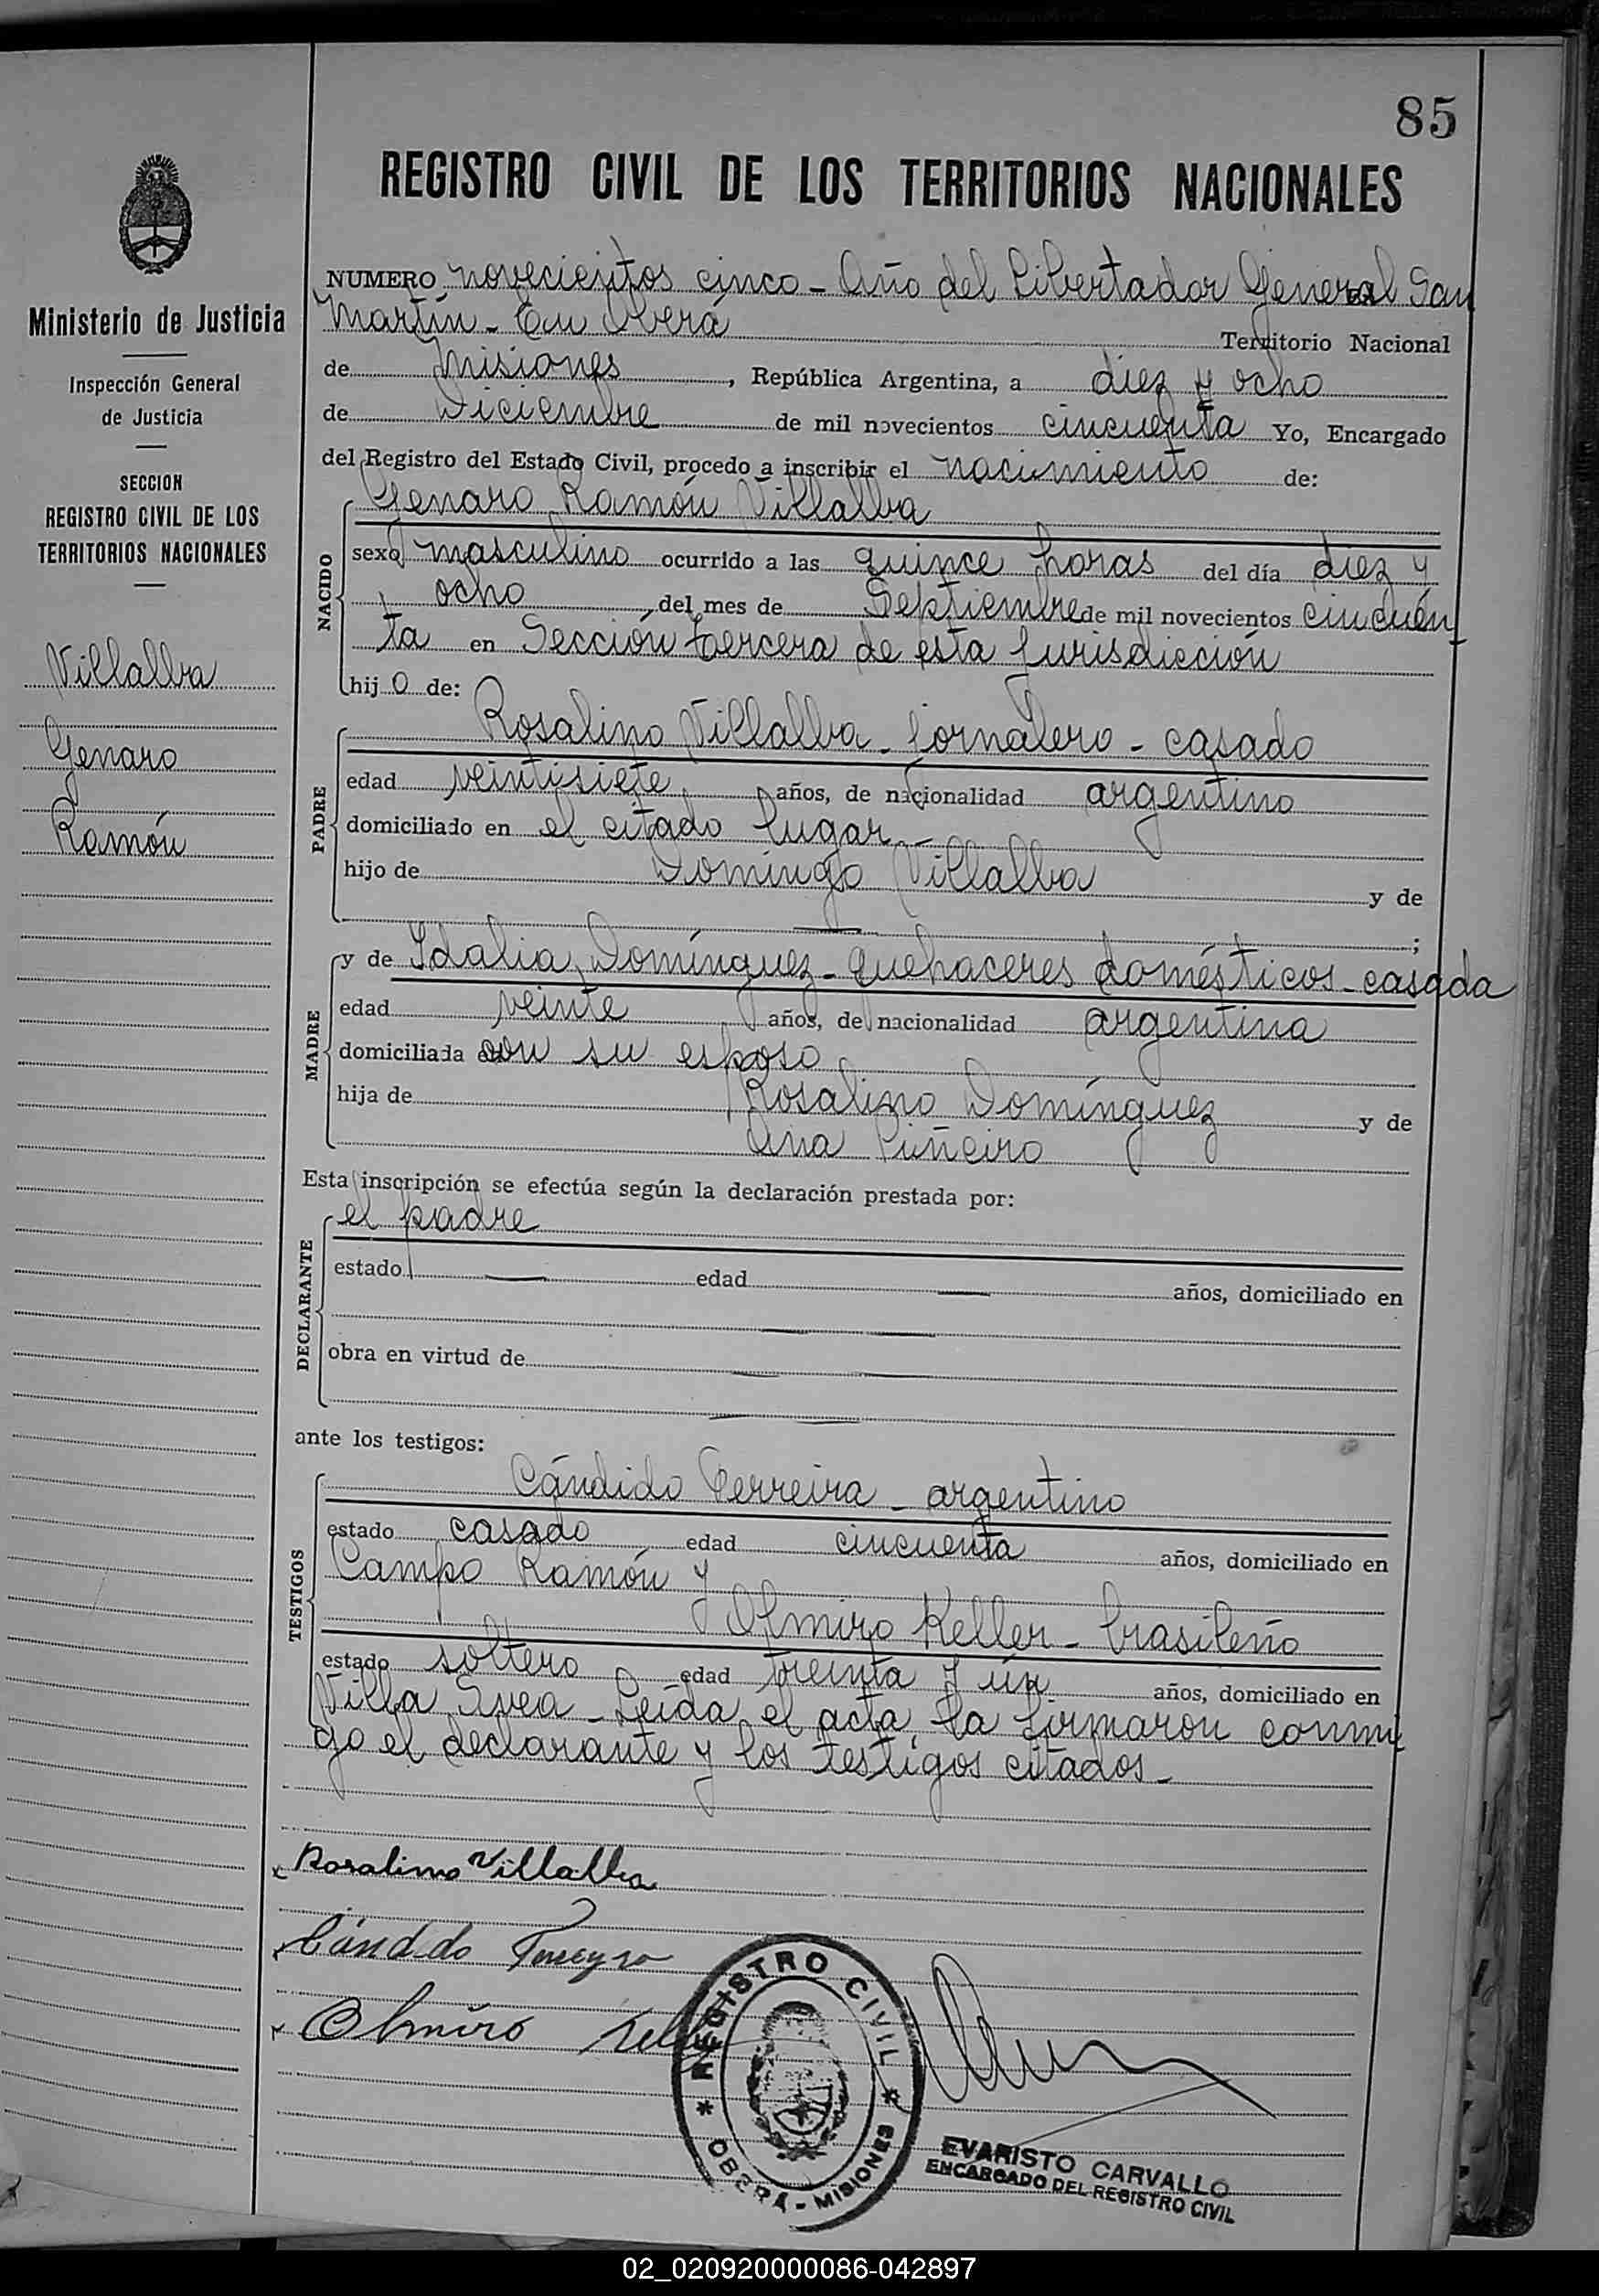 85
REGISTRO CIVIL DE LOS TERRITORIOS NACIONALES
Ministerio de Justicia
Inspección General
de Justicia
SECCION
REGISTRO CIVIL DE LOS
TERRITORIOS NACIONALES
Villalba
Genaro
Ramón
NUMERO novecientos cinco - Año del Libertador General San
Martín - En Oberá Territorio Nacional
de Misiones, República Argentina, a diez y ocho
de Diciembre de mil novecientos cincuenta Yo, Encargado
del Registro del Estado Civil, procedo a inscribir el nacimiento de:
NACIDO
Genaro Ramón Villalba
sexo masculino ocurrido a las quince horas del día diez y
ocho del mes de Septiembre de mil novecientos cincuen
ta en Sección tercera de esta jurisdicción
hij o de:
PADRE
Rosalino Villalba - jornalero - casado
edad veintisiete años, de nacionalidad argentino
domiciliado en el citado lugar -
hijo de Domingo Villalba y de
;
MADRE
y de Idalia Domínguez - quehaceres domésticos - casada
edad veinte años, de nacionalidad argentina
domiciliada con su esposo
hija de Rosalino Domínguez y de
Ana Piñeiro
Esta inscripción se efectúa según la declaración prestada por:
DECLARANTE
el padre
estado edad años, domiciliado en
obra en virtud de
ante los testigos:
TESTIGOS
Cándido Ferreira - argentino
estado casado edad cincuenta años, domiciliado en
Campo Ramón y
Olmiro Keller - brasileño
estado soltero edad treinta y ún años, domiciliado en
Villa Svea - Leída el acta la firmaron conmi
go el declarante y los testigos citados -
x Rosalino Villalba
x Cándido Ferreyra
x Olmiro Keller
REGISTRO CIVIL
* OBERÁ - MISIONES *
EVARISTO CARVALLO
ENCARGADO DEL REGISTRO CIVIL
02_020920000086-042897